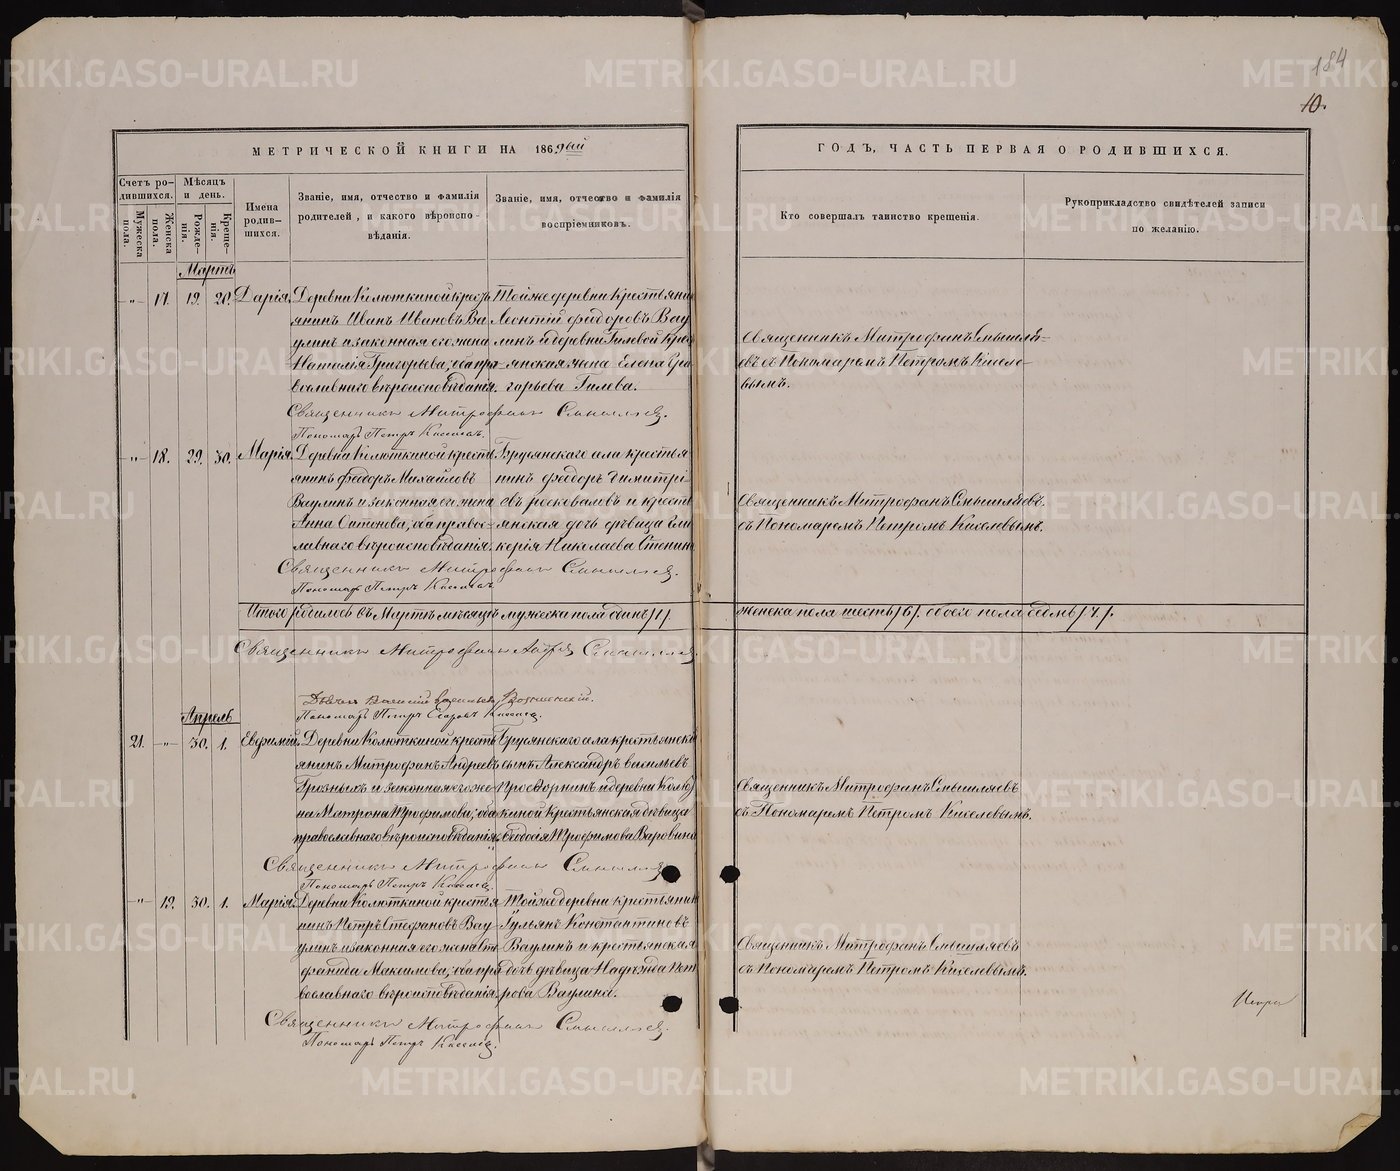 184
10.
МЕТРИЧЕСКОЙ КНИГИ НА 1869ый
ГОДЪ, ЧАСТЬ ПЕРВАЯ О РОДИВШИХСЯ.
Счетъ ро-
дившихся.
Мужеска
пола.
Женска
пола.
Мѣсяцъ
и день.
Рожде-
нія.
Креще-
нія.
Имена
родив-
шихся.
Званіе, имя, отчество и фамилія
родителей, и какого вѣроиспо-
вѣданія.
Званіе, имя, отчество и фамилія
воспріемниковъ.
Кто совершалъ таинство крещенія.
Рукоприкладство свидѣтелей записи
по желанію.
Мартъ
-„- 17. 19. 20. Дарія.
Деревни Колюткиной крест
янинъ Иванъ Ивановъ Ва
улинъ и законная его жена
Наталія Григорьева, оба пра-
вославнаго вѣроисповѣданія.
Тойже деревни крестьянин
Леонтій Федоровъ Вау
линъ и деревни Гилевой крес
янская жена Елена
горьева Гилева.
Священникъ Митрофанъ Смышля-
евъ съ Пономаремъ Петромъ Киселе-
вымъ.
Священникъ Митрофанъ Смышляевъ.
Пономарь Петръ Киселевъ.
-„- 18. 29. 30. Марія.
Деревни Колюткиной кресть
янинъ Федоръ Михайловъ
Ваулинъ и законная его жена
Анна Антонова, оба правос-
лавнаго вѣроисповѣданія.
Брусянскаго села крестья
нинъ Федоръ Димитрі-
евъ и кресть
янская дочь дѣвица Гли
керія Николаева Стенина
Священникъ Митрофанъ Смышляевъ.
съ Пономаремъ Петромъ Киселевымъ.
Священникъ Митрофанъ Смышляевъ.
Пономарь Петръ Киселевъ
Итого родилось въ Мартѣ мѣсяцѣ мужеска пола одинъ /1/.
женска пола шесть /6/. обоего пола седмь /7/.
Священникъ Митрофанъ Смышляевъ
Дьячекъ Василій Васильевъ Вознесенскій.
Пономарь Петръ Егоровъ Киселевъ.
Апрель
21. -„- 30. 1. Евфимій.
Деревни Колюткиной кресть
янинъ Митрофанъ Андреевъ
Грозныхъ и законная его же-
на Матрона Трофимова, оба
православнаго вѣроисповѣданія.
Брусянскаго села крестьянскі
сынъ Александръ Васильевъ
Просворнинъ и деревни Колют
киной Крестьянская дѣвица
Феодосія Трофимова Варовина
Священникъ Митрофанъ Смышляевъ
съ Пономаремъ Петромъ Киселевымъ.
Священникъ Митрофанъ Смышляевъ
Пономарь Петръ Киселевъ.
-„- 19. 30. 1. Марія.
Деревни Колюткиной крестья
нинъ Петръ Стефановъ Вау
улинъ и законная его жена Сте
фанида Максимова, оба пра
вославнаго вѣроисповѣданія.
Тойже деревни крестьянин
Гульянъ Константиновъ
Ваулинъ и крестьянская
дочь дѣвица Надежда Пет
рова Ваулина.
Священникъ Митрофанъ Смышляевъ
съ Пономаремъ Петромъ Киселевымъ.
Священникъ Митрофанъ Смышляевъ.
Пономарь Петръ Киселевъ.
METRIKI.GASO-URAL.RU